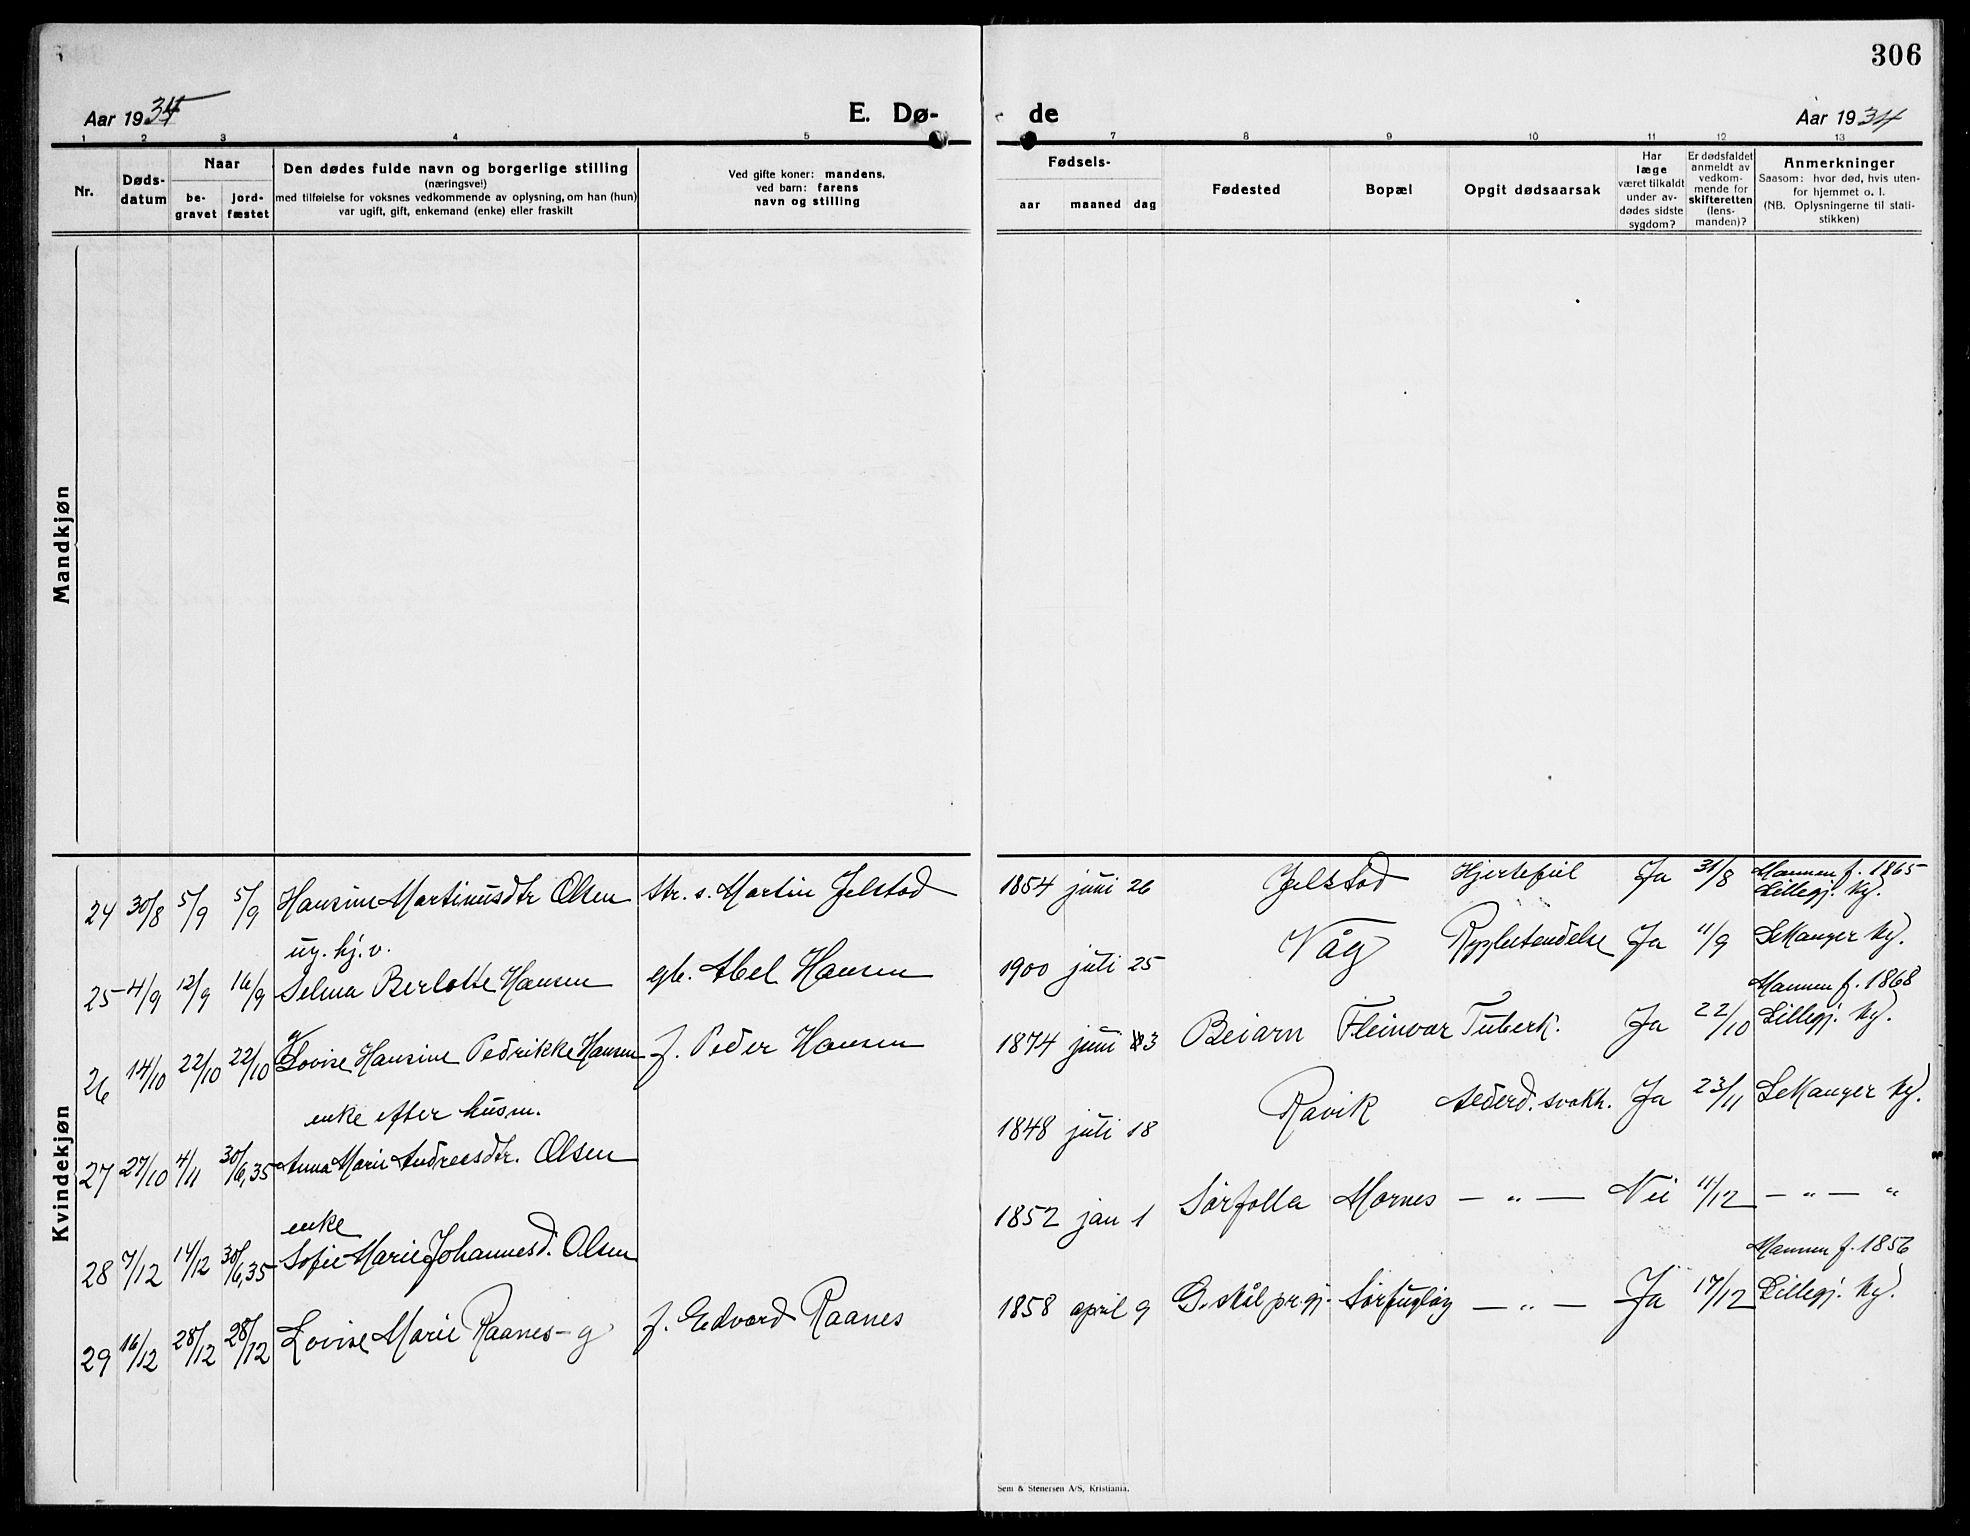 306
Aar 1934
E. Dø-
de
Aar 1934
1 2 3 4 5 7 8 9 10 11 12 13
Nr.
Døds-
datum
Naar
be-
gravet
jord-
fæstet
Den dødes fulde navn og borgerlige stilling
(næringsvei)
med tilføielse for voksnes vedkommende av oplysning, om han (hun)
var ugift, gift, enkemand (enke) eller fraskilt
Ved gifte koner: mandens,
ved barn: farens
navn og stilling
Fødsels-
aar maaned dag
Fødested
Bopæl
Opgit dødsaarsak
Har
læge
været tilkaldt
under av-
dødes sidste
sygdom?
Er dødsfaldet
anmeldt av
vedkom-
mende for
skifteretten
(lens-
manden)?
Anmerkninger
Saasom: hvor død, hvis uten-
for hjemmet o. l.
(NB. Oplysningerne til stati-
stikken)
Mandkjøn
Kvindekjøn
24 30/8 5/9 5/9 Hansine Martinusdtr Olsen str. s. Martin Jelstad 1854 juni 26 Jelstad Hjertefeil Ja 31/8 Mannen f. 1865
Lillegj. kg.
ug. hj. v.
25 4/9 12/9 16/9 Selma Berlotte Hansen gb. Abel Hansen 1900 juli 25 Våg Ja 11/9 kg.
Mannen f. 1868
26 14/10 22/10 22/10 Lovise Hansine Pedrikke Hansen f. Peder Hansen 1874 juni 3 Beiarn Fleinvær Tuberk. Ja 22/10 Lillegj. kg.
enke efter husm.
27 27/10 4/11 30/6,35 Anna Marie Andreasdtr. Olsen 1848 juli 18 Ravik Alderd. svakh. Ja 23/11 kg.
enke
28 7/12 14/12 30/6,35 Sofie Marie Johannesd. Olsen 1852 jan 1 Sørfolla Mornes — „ — Nei 11/12 — „ — „
Mannen f. 1856
29 16/12 28/12 28/12 Lovise Marie Raanes - g f. Edvard Raanes 1858 april 9 G.skål pr.gj. Sørfugløy — „ — Ja 17/12 Lillegj. kg.
Sem & Stenersen A/S, Kristiania.